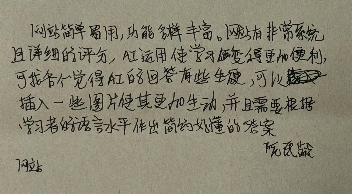 网站简单易用,功能多样丰富。网站有非常系统
且详细的评分,AI运用使学习变得更加便利,
可我个人觉得AI的回答有些生硬,可以
插入一些图片使其更加生动,并且需要根据
学习者的语言水平作出简约好懂的答案
网站